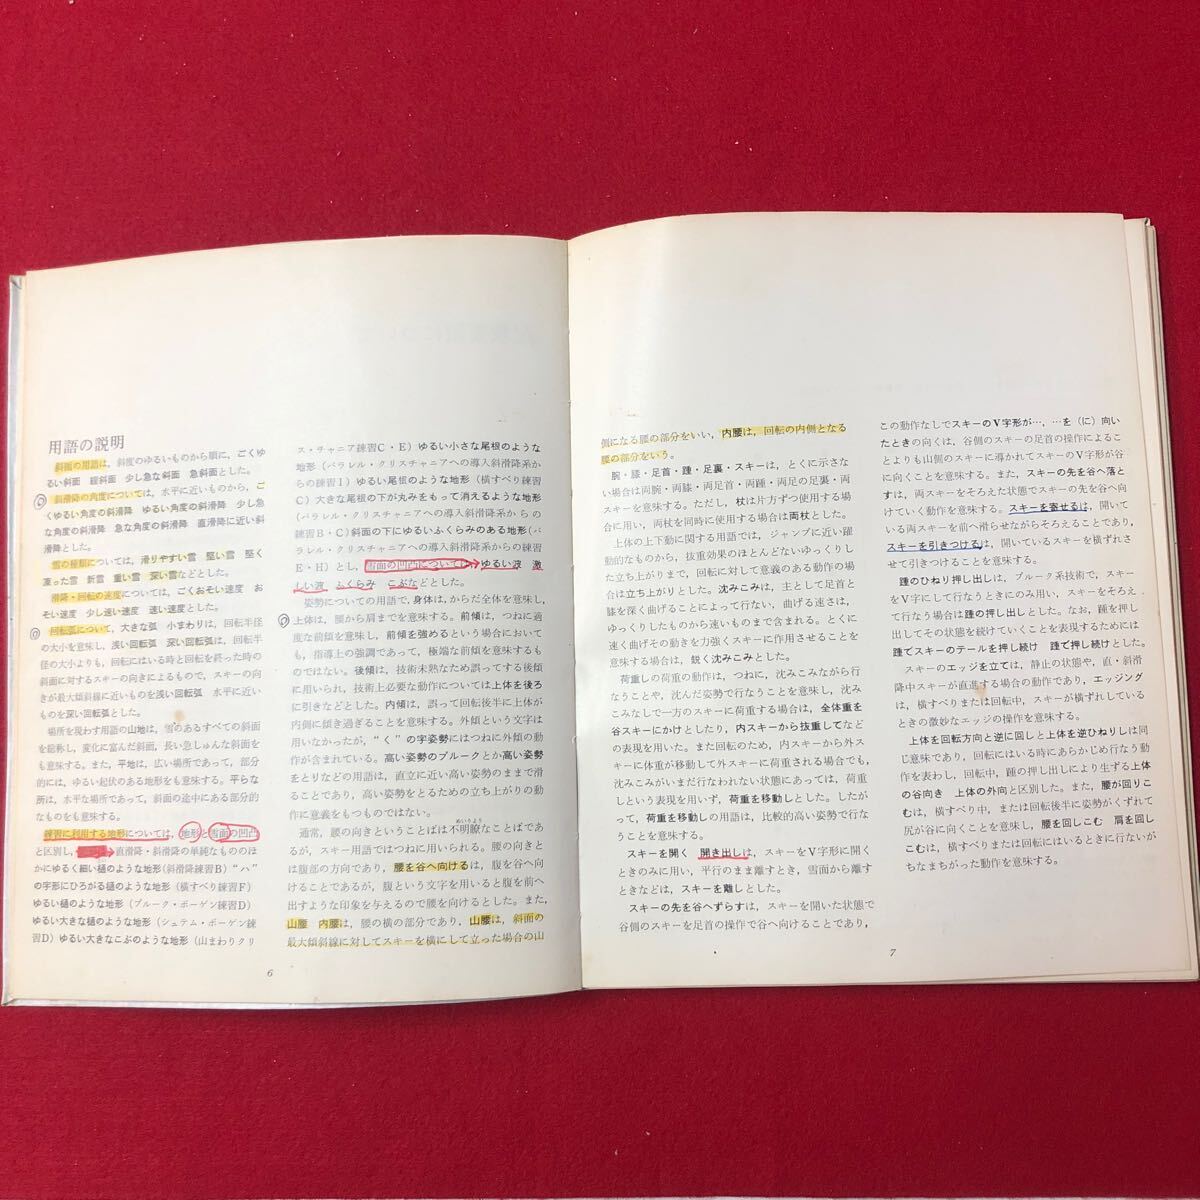 用語の説明
斜面の用語は，斜度のゆるいものから順に，ごくゆ
るい斜面　緩斜面　少し急な斜面　急斜面とした。
斜滑降の角度については，水平に近いものから，ご
くゆるい角度の斜滑降　ゆるい角度の斜滑降　少し急
な角度の斜滑降　急な角度の斜滑降　直滑降に近い斜
滑降とした。
雪の種類については，滑りやすい雪　堅い雪　堅く
凍った雪　新雪　重い雪　深い雪などとした。
滑降・回転の速度については，ごくおそい速度　お
そい速度　少し速い速度　速い速度とした。
回転弧について，大きな弧　小まわりは，回転半径
の大小を意味し，浅い回転弧　深い回転弧は，回転半
径の大小よりも，回転にはいる時と回転を終った時の
斜面に対するスキーの向きによるもので，スキーの向
きが最大傾斜線に近いものを浅い回転弧　水平に近い
ものを深い回転弧とした。
場所を現わす用語の山地は，雪のあるすべての斜面
を総称し，変化に富んだ斜面，長い急しゅんな斜面を
も意味する。また，平地は，広い場所であって，部分
的には，ゆるい起伏のある地形をも意味する。平らな
所は，水平な場所であって，斜面の途中にある部分的
なものをも意味する。
練習に利用する地形については，地形と雪面の凹凸
と区別し，直滑降・斜滑降の単純なもののほ
かにゆるく細い樋のような地形(斜滑降練習B)“ハ”
の字形にひろがる樋のような地形(横すべり練習F)
ゆるい樋のような地形(プルーク・ボーゲン練習D)
ゆるい大きな樋のような地形(シュテム・ボーゲン練
習D)ゆるい大きなこぶのような地形(山まわりクリ
6
ス・チャニア練習C・E)ゆるい小さな尾根のような
地形(パラレル・クリスチャニアへの導入斜滑降系か
らの練習I)ゆるい尾根のような地形(横すべり練習
C)大きな尾根の下が丸みをもって消えるような地形
(パラレル・クリスチャニアへの導入斜滑降系からの
練習B・C)斜面の下にゆるいふくらみのある地形(パ
ラレル・クリスチャニアへの導入斜滑降系からの練習
E・H)とし，雪面の凹凸については，ゆるい波　激
しい波　ふくらみ　こぶなどとした。
姿勢についての用語で，身体は，からだ全体を意味し，
上体は，腰から肩までを意味する。前傾は，つねに適
度な前傾を意味し，前傾を強めるという場合において
も，指導上の強調であって，極端な前傾を意味するも
のではない。後傾は，技術未熟なため誤ってする後傾
に用いられ，技術上必要な動作については上体を後ろ
に引きなどとした。内傾は，誤って回転後半に上体が
内側に傾き過ぎることを意味する。外傾という文字は
用いなかったが，“く”の字姿勢にはつねに外傾の動
作が含まれている。高い姿勢のプルークとか高い姿勢
をとりなどの用語は，直立に近い高い姿勢のままで滑
ることであり，高い姿勢をとるための立ち上がりの動
作に意義をもつものではない。
通常，腰の向きということばは不明瞭(めいりょう)なことばであ
るが，スキー用語ではつねに用いられる。腰の向きと
は腹部の方向であり，腰を谷へ向けるは，腹を谷へ向
けることであるが，腹という文字を用いると腹を前へ
出すような印象を与えるので腰を向けるとした。また，
山腰　内腰は，腰の横の部分であり，山腰は，斜面の
最大傾斜線に対してスキーを横にして立った場合の山
側になる腰の部分をいい，内腰は，回転の内側となる
腰の部分をいう。
腕・膝・足首・踵・足裏・スキーは，とくに示さな
い場合は両腕・両膝・両足首・両踵・両足の足裏・両
スキーを意味する。ただし，杖は片方ずつ使用する場
合に用い，両杖を同時に使用する場合は両杖とした。
上体の上下動に関する用語では，ジャンプに近い躍
動的なものから，抜重効果のほとんどないゆっくりし
た立ち上がりまで，回転に対して意義のある動作の場
合は立ち上がりとした。沈みこみは，主として足首と
膝を深く曲げることによって行ない，曲げる速さは，
ゆっくりしたものから速いものまで含まれる。とくに
速く曲げその動きを力強くスキーに作用させることを
意味する場合は，鋭く沈みこみとした。
荷重しの用語の動作は，つねに，沈みこみながら行
なうことや，沈んだ姿勢で行なうことを意味し，沈み
こみなしで一方のスキーに荷重する場合は，全体重を
谷スキーにかけとしたり，内スキーから抜重してなど
の表現を用いた。また回転のため，内スキーから外ス
キーに体重が移動して外スキーに荷重される場合でも，
沈みこみがいまだ行なわれない状態にあっては，荷重
しという表現を用いず，荷重を移動しとした。したが
って，荷重を移動しの用語は，比較的高い姿勢で行な
うことを意味する。
スキーを開く　開き出しは，スキーをV字形に開く
ときのみに用い，平行のまま離すとき，雪面から離す
ときなどは，スキーを離しとした。
スキーの先を谷へずらすは，スキーを開いた状態で
谷側のスキーを足首の操作で谷へ向けることであり，
7
この動作なしでスキーのV字形が……を(に)向い
たときの向くは，谷側のスキーの足首の操作によるこ
とよりも山側のスキーに導かれてスキーのV字形が谷
に向くことを意味する。また，スキーの先を谷へ落と
すは，両スキーをそろえた状態でスキーの先を谷へ向
けていく動作を意味する。スキーを寄せるは，開いて
いる両スキーを前へ滑らせながらそろえることであり，
スキーを引きつけるは，開いているスキーを横ずれさ
せて引きつけることを意味する。
踵のひねり押し出しは，プルーク系技術で，スキー
をV字にして行なうときにのみ用い，スキーをそろえ
て行なう場合は踵の押し出しとした。なお，踵を押し
出してその状態を続けていくことを表現するためには
踵でスキーのテールを押し続け　踵で押し続けとした。
スキーのエッジを立ては，静止の状態や，直・斜滑
降中スキーが直進する場合の動作であり，エッジング
は，横すべりまたは回転中，スキーが横ずれしている
ときの微妙なエッジの操作を意味する。
上体を回転方向と逆に回しと上体を逆ひねりしは同
意語であり，回転にはいる時にあらかじめ行なう動
作を表わし，回転中，踵の押し出しにより生ずる上体
の谷向き　上体の外向と区別した。また，腰が回りこ
むは，横すべり中，または回転後半に姿勢がくずれて
尻が谷に向くことを意味し，腰を回しこむ　肩を回し
こむは，横すべりまたは回転にはいるときに行ないが
ちなまちがった動作を意味する。